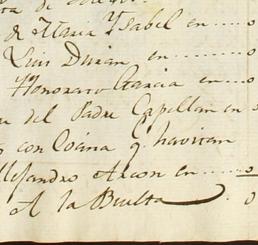 de Maria Ysabel en ..... 0
Luis Duran en ........ 0
Honorato Garcia en ..... 0
del Padre Capellan en 0
con Cocina q.e havitan
Alejandro Arcon en ...... 0
A la Buelta . 0